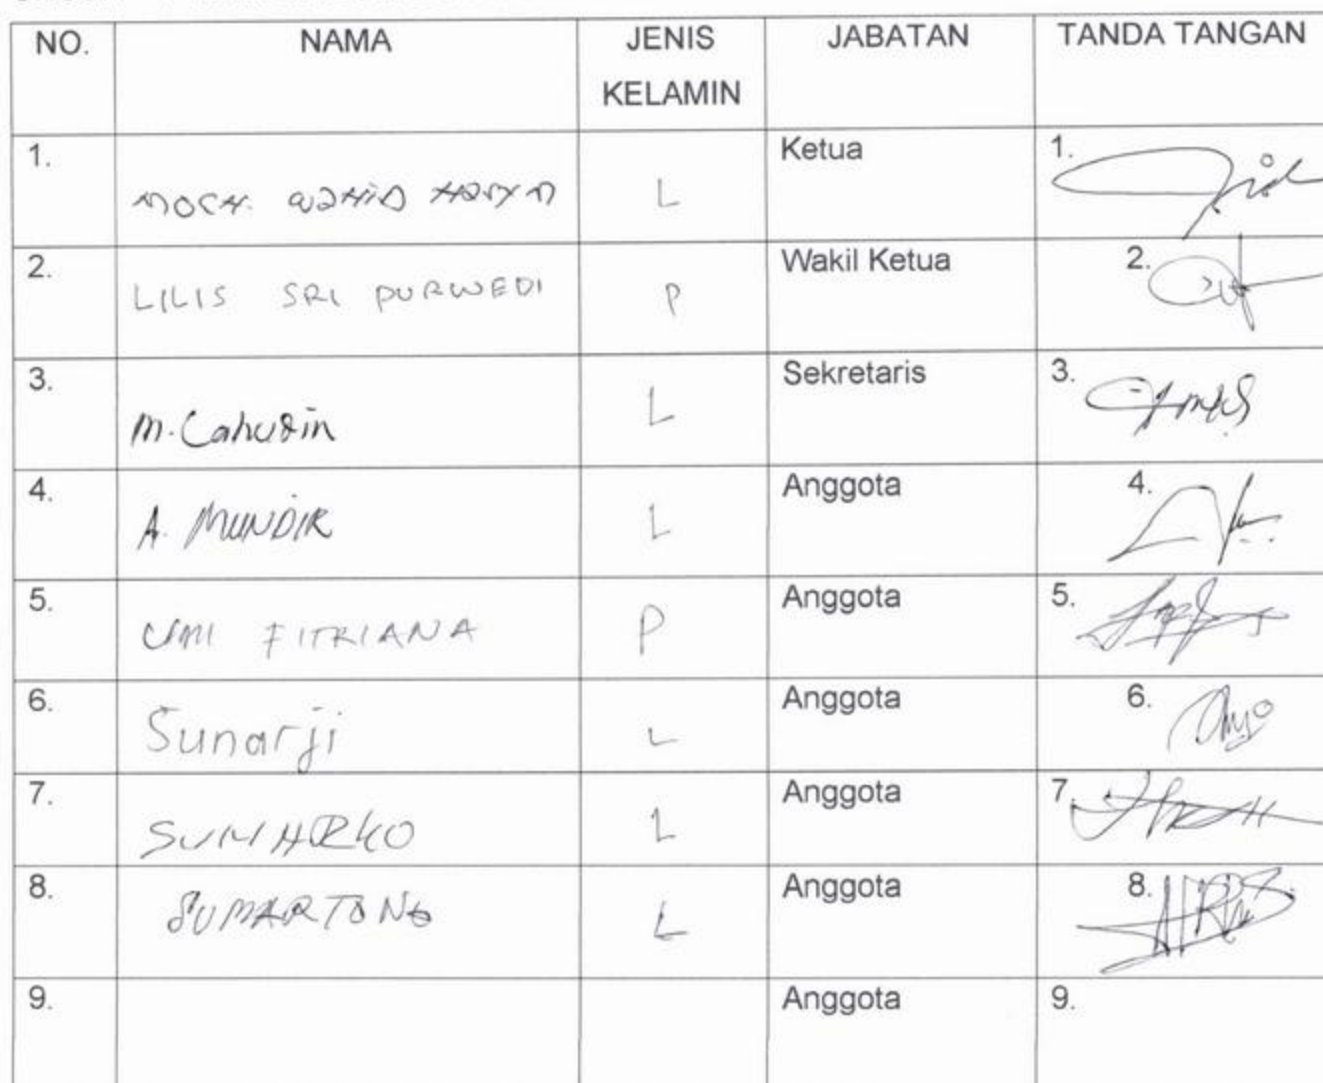 NO. NAMA JENIS KELAMIN JABATAN TANDA TANGAN
1. MOCH. WAHID HASYIM L Ketua 1.
2. LILIS SRI PURWEDI P Wakil Ketua 2.
3. M. Cahudin L Sekretaris 3.
4. A. MUNDIR L Anggota 4.
5. UMI FITRIANA P Anggota 5.
6. Sunarji L Anggota 6.
7. SUMARKO L Anggota 7.
8. SUMARTONO L Anggota 8.
9. Anggota 9.